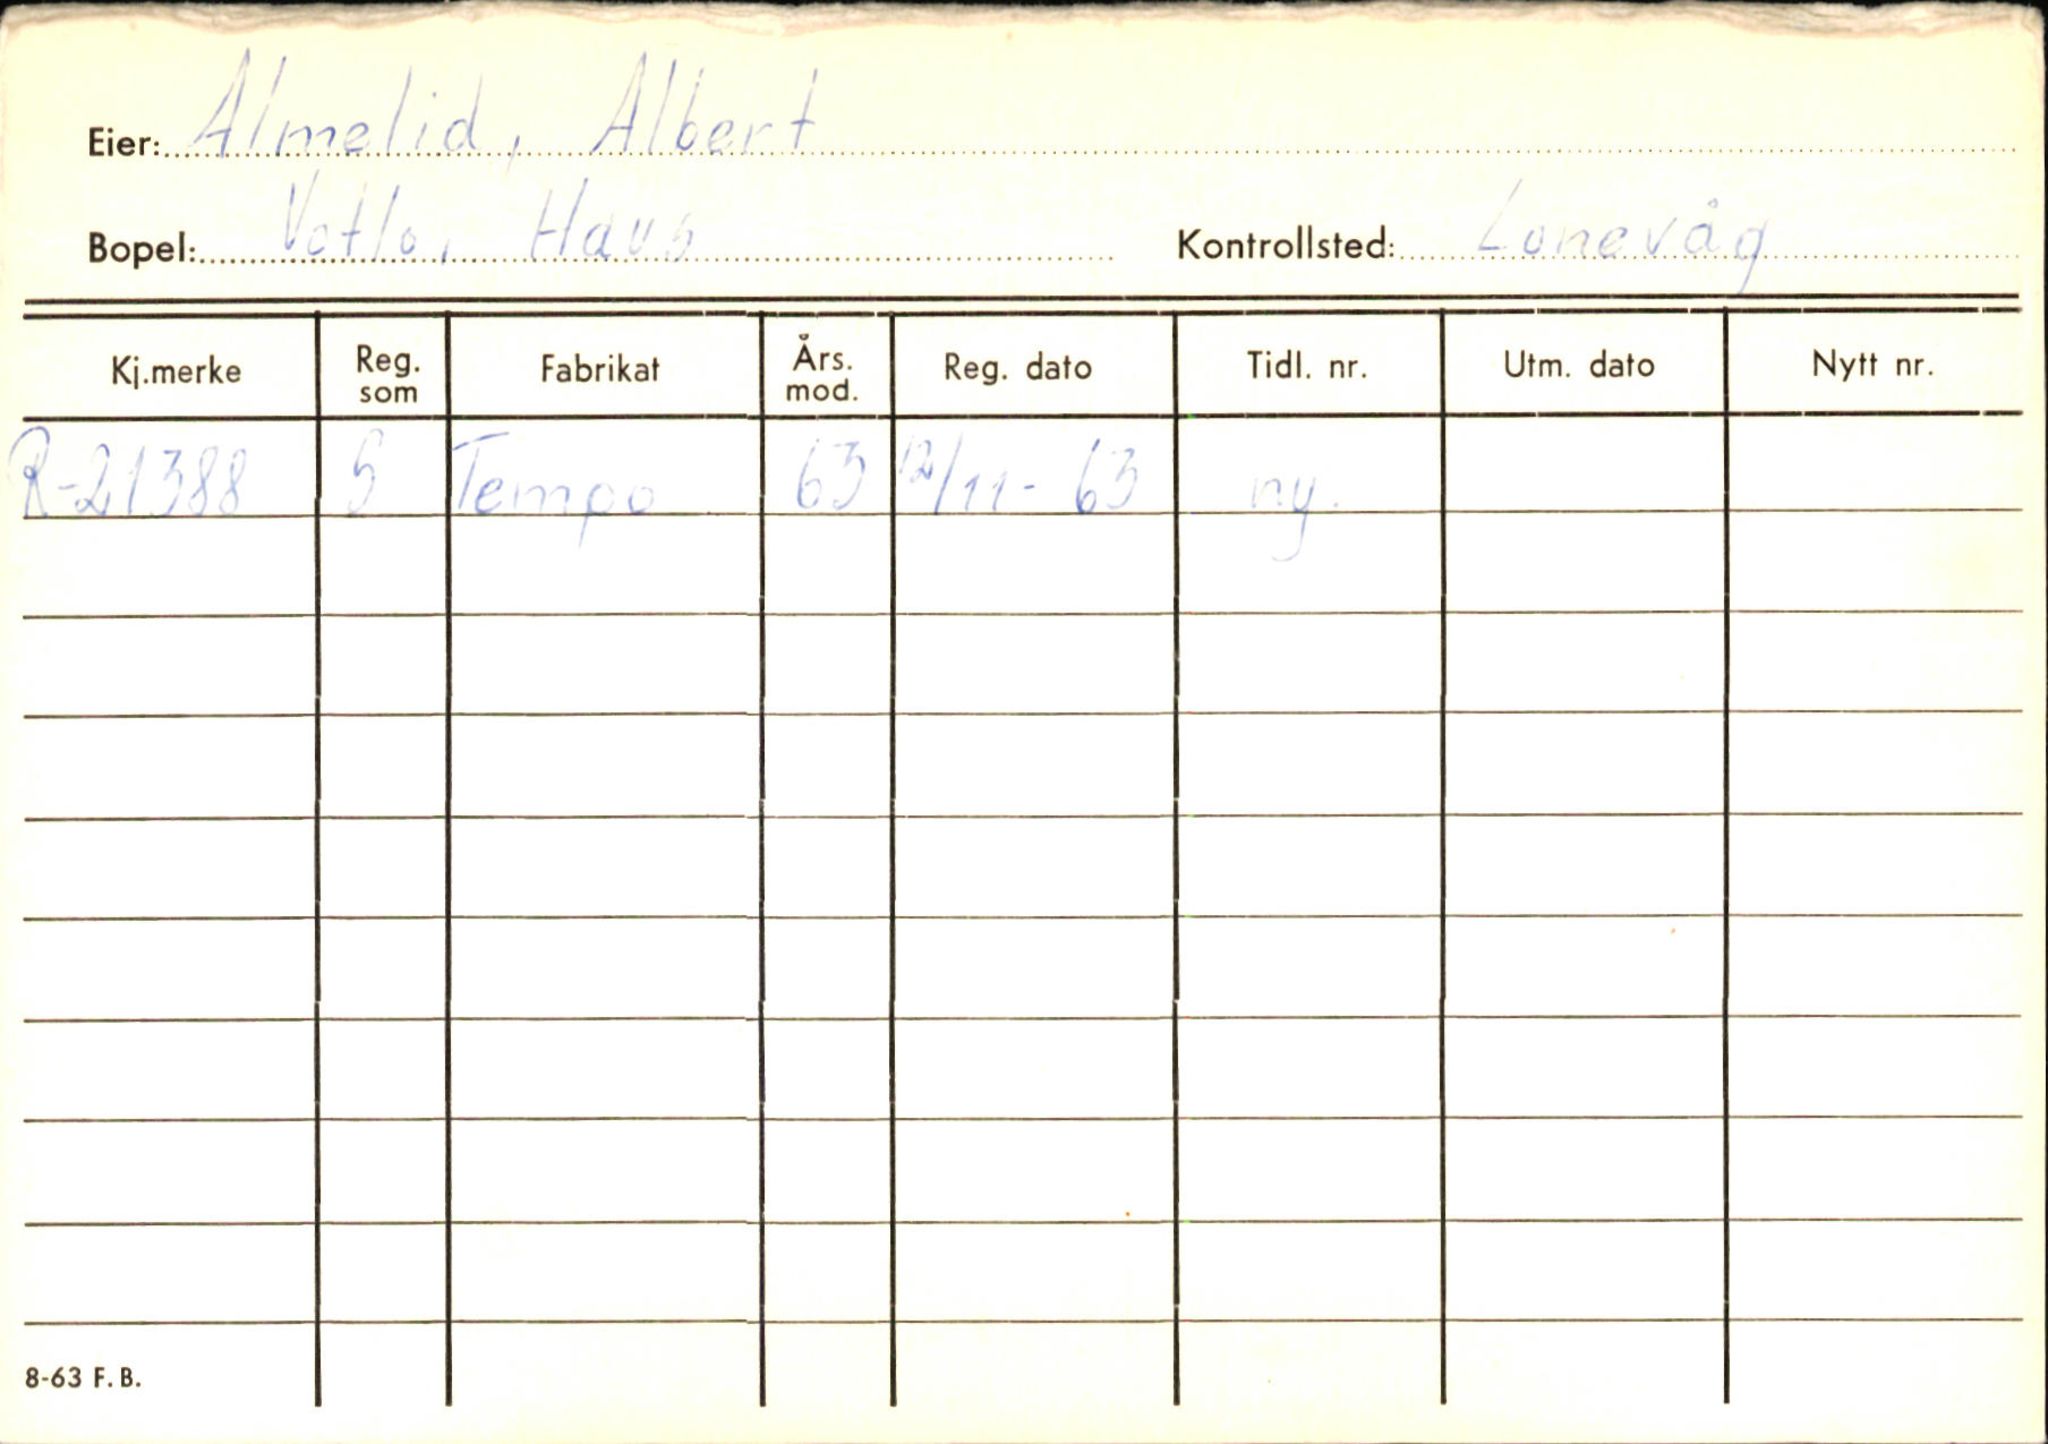 Eier: Almelid, Albert
Bopel: Votlo, Haus Kontrollsted: Lonevåg
Kj.merke Reg. som Fabrikat Års. mod. Reg. dato Tidl. nr. Utm. dato Nytt nr.
R-21388 S Tempo 63 12/11-63 ny.
8-63 F. B.